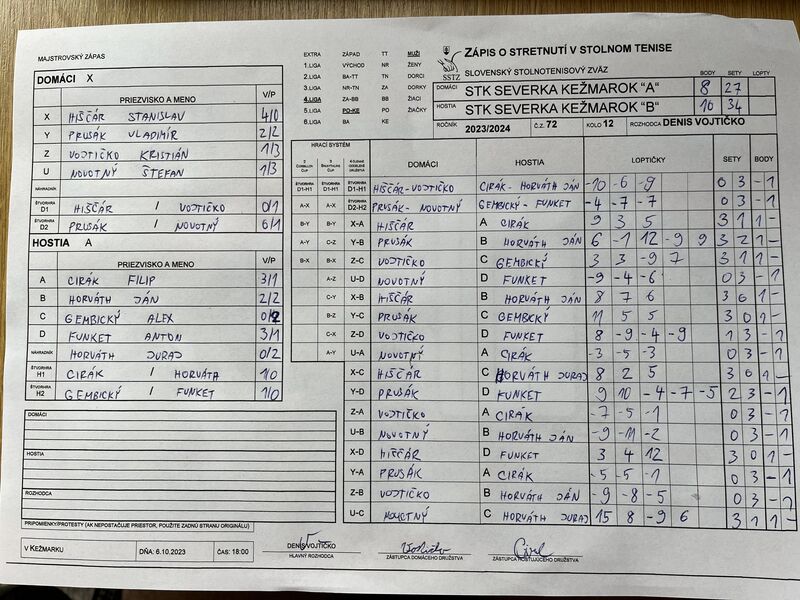 MAJSTROVSKÝ ZÁPAS
DOMÁCI X
PRIEZVISKO A MENO V/P
X HIŠČÁR STANISLAV 4/0
Y PRUSÁK VLADIMÍR 2/2
Z VOJTIČKO KRISTIÁN 1/3
U NOVOTNÝ ŠTEFAN 1/3
NÁHRADNÍK
ŠTVORHRA D1 HIŠČÁR / VOJTIČKO 0/1
ŠTVORHRA D2 PRUSÁK / NOVOTNÝ 0/1
HOSTIA A
PRIEZVISKO A MENO V/P
A CIRÁK FILIP 3/1
B HORVÁTH JÁN 2/2
C GEMBICKÝ ALEX 0/2
D FUNKET ANTON 3/1
NÁHRADNÍK HORVÁTH JURAJ 0/2
ŠTVORHRA H1 CIRÁK / HORVÁTH 1/0
ŠTVORHRA H2 GEMBICKÝ / FUNKET 1/0
DOMÁCI
HOSTIA
ROZHODCA
PRIPOMIENKY/PROTESTY (AK NEPOSTAČUJE PRIESTOR, POUŽITE ZADNÚ STRANU ORIGINÁLU)
V KEŽMARKU DŇA: 6.10.2023 ČAS: 18:00
EXTRA ZÁPAD TT MUŽI
1.LIGA VÝCHOD NR ŽENY
2.LIGA BA-TT TN DORCI
3.LIGA NR-TN ZA DORKY
4.LIGA ZA-BB BB ŽIACI
5.LIGA PO-KE PO ŽIAČKY
6.LIGA BA KE
SSTZ
ZÁPIS O STRETNUTÍ V STOLNOM TENISE
SLOVENSKÝ STOLNOTENISOVÝ ZVÄZ BODY SETY LOPTY
DOMÁCI STK SEVERKA KEŽMAROK "A" 8 27
HOSTIA STK SEVERKA KEŽMAROK "B" 10 34
ROČNÍK 2023/2024 Č.Z. 72 KOLO 12 ROZHODCA DENIS VOJTIČKO
HRACÍ SYSTÉM
DOMÁCI HOSTIA LOPTIČKY SETY BODY
ŠTVORHRA D1-H1 ŠTVORHRA D1-H1 ŠTVORHRA D1-H1 HIŠČÁR-VOJTIČKO CIRÁK-HORVÁTH JÁN -10 -6 -9 0 3 -1
A-X A-X ŠTVORHRA D2-H2 PRUSÁK-NOVOTNÝ GEMBICKÝ-FUNKET -4 -7 -7 0 3 -1
B-Y B-Y X-A HIŠČÁR A CIRÁK 9 3 5 3 1 1 -
A-Y C-Z Y-B PRUSÁK B HORVÁTH JÁN 6 -1 12 -9 9 3 2 1 -
B-X B-X Z-C VOJTIČKO C GEMBICKÝ 3 3 -9 7 3 1 1 -
A-Z U-D NOVOTNÝ D FUNKET -9 -4 -6 0 3 -1
C-Y X-B HIŠČÁR B HORVÁTH JÁN 8 7 6 3 0 1 -
B-Z Y-C PRUSÁK C GEMBICKÝ 11 5 5 3 0 1 -
C-X Z-D VOJTIČKO D FUNKET 8 -9 -4 -9 1 3 -1
A-Y U-A NOVOTNÝ A CIRÁK -3 -5 -3 0 3 -1
X-C HIŠČÁR C HORVÁTH JURAJ 8 2 5 3 0 1 -
Y-D PRUSÁK D FUNKET 9 10 -4 -7 -5 2 3 -1
Z-A VOJTIČKO A CIRÁK -7 -5 -1 0 3 -1
U-B NOVOTNÝ B HORVÁTH JÁN -9 -11 -2 0 3 -1
X-D HIŠČÁR D FUNKET 3 4 12 3 0 1 -
Y-A PRUSÁK A CIRÁK -5 -5 -1 0 3 -1
Z-B VOJTIČKO B HORVÁTH JÁN -9 -8 -5 0 3 -1
U-C NOVOTNÝ C HORVÁTH JURAJ 15 8 -9 6 3 1 1 -
DENIS VOJTIČKO
HLAVNÝ ROZHODCA
ZÁSTUPCA DOMÁCEHO DRUŽSTVA
ZÁSTUPCA HOSŤUJÚCEHO DRUŽSTVA